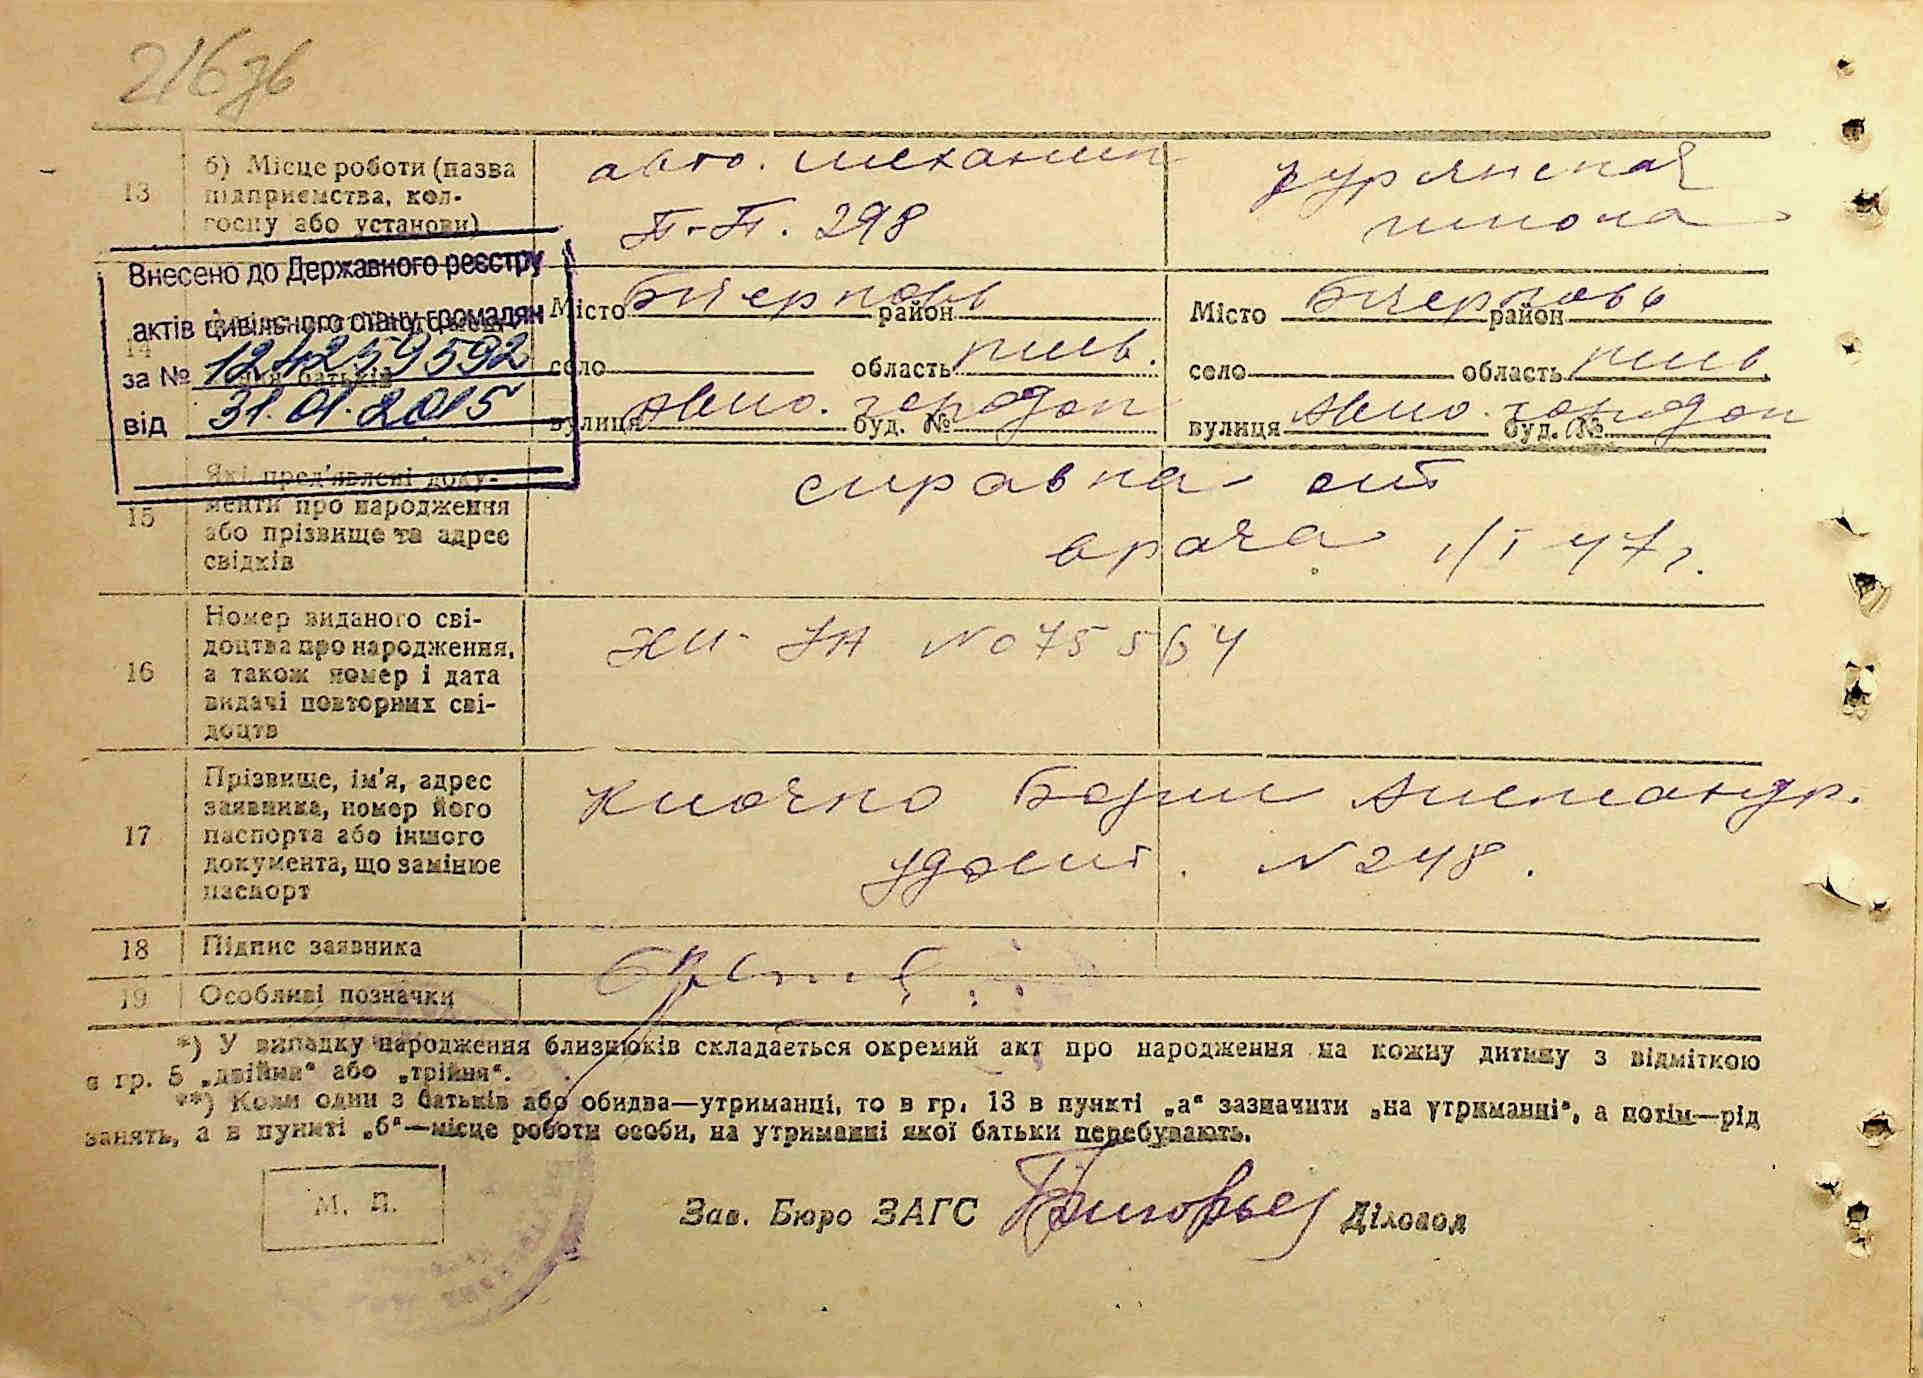 216зв
13
б) Місце роботи (назва
підприємства, кол-
госпу або установи)
авто. механик
П-П. 298
школа
Внесено до Державного реєстру
актів цивільного стану громадян
за № 124259592
від 31.01.2015
14
батьків
Місто район
село область киев.
вулиця Авио. городок буд. №
Місто район
село область киев.
вулиця Авио. городок буд. №
15
Які пред'явлені доку-
менти про народження
або прізвище та адрес
свідків
справка от
врача 1/I 47 г.
16
Номер виданого сві-
доцтва про народження,
а також номер і дата
видачі повторних сві-
доцтв
№ 075564
17
Прізвище, ім'я, адрес
заявника, номер його
паспорта або іншого
документа, що замінює
паспорт
Клочко Борис Александр.
удост. № 248.
18
Підпис заявника
19
Особливі позначки
*) У випадку народження близнюків складається окремий акт про народження на кожну дитину з відміткою
в гр. 5 „двійня“ або „трійня“.
**) Коли один з батьків або обидва—утриманці, то в гр. 13 в пункті „а“ зазначити „на утриманні“, а потім—рід
занять, а в пункті „б“—місце роботи особи, на утриманні якої батьки перебувають.
М. П.
Зав. Бюро ЗАГС
Діловод